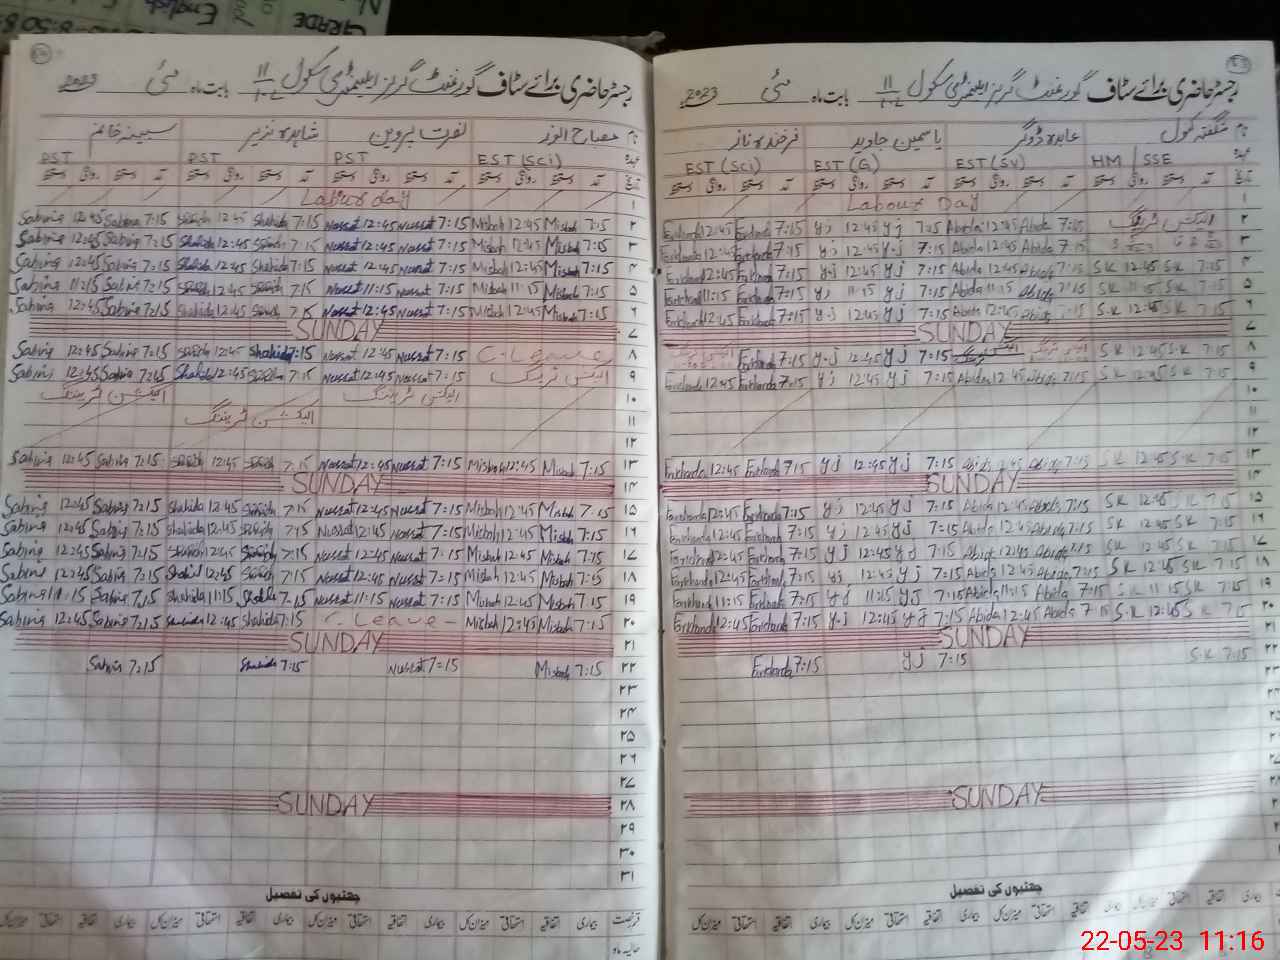 GRADE
English
رجسٹر حاضری برائے سٹاف گورنمنٹ گرلز ایلیمنٹری سکول 11/10-L بابت ماہ مئی 2023
نام شگفتہ کنول عابدہ ڈوگر یاسمین جاوید فرخندہ ناز
عہدہ HM / SSE EST (SV) EST (G) EST (Sci)
۱ Labour Day
۲ الیکشن ٹریننگ Abida 7:15 Abida 12:45 yj 7:15 yj 12:45 Farkhanda 7:15 Farkhanda 12:45
۳ Abida 7:15 Abida 12:45 yj 7:15 yj 12:45 Farkhanda 7:15 Farkhanda 12:45
۴ S.K 7:15 S.K 12:45 Abida 7:15 Abida 12:45 yj 7:15 yj 12:45 Farkhanda 7:15 Farkhanda 12:45
۵ S.K 7:15 S.K 11:15 Abida 7:15 Abida 11:15 yj 7:15 yj 11:15 Farkhanda 7:15 Farkhanda 11:15
۶ S.K 7:15 S.K 12:45 Abida 7:15 Abida 12:45 yj 7:15 yj 12:45 Farkhanda 7:15 Farkhanda 12:45
۷ SUNDAY
۸ S.K 7:15 S.K 12:45 الیکشن ٹریننگ yj 7:15 yj 12:45 Farkhanda 7:15
۹ S.K 7:15 S.K 12:45 Abida 7:15 Abida 12:45 yj 7:15 yj 12:45 Farkhanda 7:15 Farkhanda 12:45
۱۰
۱۱
۱۲
۱۳ S.K 7:15 S.K 12:45 Abida 7:15 Abida 12:45 yj 7:15 yj 12:45 Farkhanda 7:15 Farkhanda 12:45
۱۴ SUNDAY
۱۵ S.K 7:15 S.K 12:45 Abida 7:15 Abida 12:45 yj 7:15 yj 12:45 Farkhanda 7:15 Farkhanda 12:45
۱۶ S.K 7:15 S.K 12:45 Abida 7:15 Abida 12:45 yj 7:15 yj 12:45 Farkhanda 7:15 Farkhanda 12:45
۱۷ S.K 7:15 S.K 12:45 Abida 7:15 Abida 12:45 yj 7:15 yj 12:45 Farkhanda 7:15 Farkhanda 12:45
۱۸ S.K 7:15 S.K 12:45 Abida 7:15 Abida 12:45 yj 7:15 yj 12:45 Farkhanda 7:15 Farkhanda 12:45
۱۹ S.K 7:15 S.K 11:15 Abida 7:15 Abida 11:15 yj 7:15 yj 11:15 Farkhanda 7:15 Farkhanda 11:15
۲۰ S.K 7:15 S.K 12:45 Abida 7:15 Abida 12:45 yj 7:15 yj 12:45 Farkhanda 7:15 Farkhanda 12:45
۲۱ SUNDAY
۲۲ S.K 7:15 yj 7:15 Farkhanda 7:15
SUNDAY
چھٹیوں کی تفصیل
اتفاقیہ استحقاقی میزان کل بیماری اتفاقیہ استحقاقی میزان کل بیماری اتفاقیہ استحقاقی میزان کل بیماری اتفاقیہ استحقاقی میزان کل
رجسٹر حاضری برائے سٹاف گورنمنٹ گرلز ایلیمنٹری سکول 11/10-L بابت ماہ مئی 2023
نام مصباح انور نصرت پروین شاہدہ نذیر سبینہ خانم
عہدہ EST (Sci) PST PST PST
۱ Labour day
۲ Misbah 7:15 Misbah 12:45 Nusrat 7:15 Nusrat 12:45 Shahida 7:15 Shahida 12:45 Sabina 7:15 Sabina 12:45
۳ Misbah 7:15 Misbah 12:45 Nusrat 7:15 Nusrat 12:45 Shahida 7:15 Shahida 12:45 Sabina 7:15 Sabina 12:45
۴ Misbah 7:15 Misbah 12:45 Nusrat 7:15 Nusrat 12:45 Shahida 7:15 Shahida 12:45 Sabina 7:15 Sabina 12:45
۵ Misbah 7:15 Misbah 11:15 Nusrat 7:15 Nusrat 11:15 Shahida 7:15 Shahida 12:45 Sabina 7:15 Sabina 11:15
۶ Misbah 7:15 Misbah 12:45 Nusrat 7:15 Nusrat 12:45 Shahida 7:15 Shahida 12:45 Sabina 7:15 Sabina 12:45
۷ SUNDAY
۸ C.Leave Nusrat 7:15 Nusrat 12:45 Shahida 7:15 Shahida 12:45 Sabina 7:15 Sabina 12:45
۹ الیکشن ٹریننگ Nusrat 7:15 Nusrat 12:45 Shahida 7:15 Shahida 12:45 Sabina 7:15 Sabina 12:45
۱۰ الیکشن ٹریننگ الیکشن ٹریننگ
۱۱ الیکشن ٹریننگ
۱۲
۱۳ Misbah 7:15 Misbah 12:45 Nusrat 7:15 Nusrat 12:45 Shahida 7:15 Shahida 12:45 Sabina 7:15 Sabina 12:45
۱۴ SUNDAY
۱۵ Misbah 7:15 Misbah 12:45 Nusrat 7:15 Nusrat 12:45 Shahida 7:15 Shahida 12:45 Sabina 7:15 Sabina 12:45
۱۶ Misbah 7:15 Misbah 12:45 Nusrat 7:15 Nusrat 12:45 Shahida 7:15 Shahida 12:45 Sabina 7:15 Sabina 12:45
۱۷ Misbah 7:15 Misbah 12:45 Nusrat 7:15 Nusrat 12:45 Shahida 7:15 Shahida 12:45 Sabina 7:15 Sabina 12:45
۱۸ Misbah 7:15 Misbah 12:45 Nusrat 7:15 Nusrat 12:45 Shahida 7:15 Shahida 12:45 Sabina 7:15 Sabina 12:45
۱۹ Misbah 7:15 Misbah 12:45 Nusrat 7:15 Nusrat 11:15 Shahida 7:15 Shahida 11:15 Sabina 7:15 Sabina 11:15
۲۰ Misbah 7:15 Misbah 12:45 Leave Shahida 7:15 Shahida 12:45 Sabina 7:15 Sabina 12:45
۲۱ SUNDAY
۲۲ Misbah 7:15 Nusrat 7:15 Shahida 7:15 Sabina 7:15
۲۳
۲۴
۲۵
۲۶
۲۷
۲۸ SUNDAY
۲۹
۳۰
۳۱
چھٹیوں کی تفصیل
اتفاقیہ استحقاقی میزان کل بیماری اتفاقیہ استحقاقی میزان کل بیماری اتفاقیہ استحقاقی میزان کل بیماری اتفاقیہ استحقاقی میزان کل
حالیہ ماہ
22-05-23 11:16